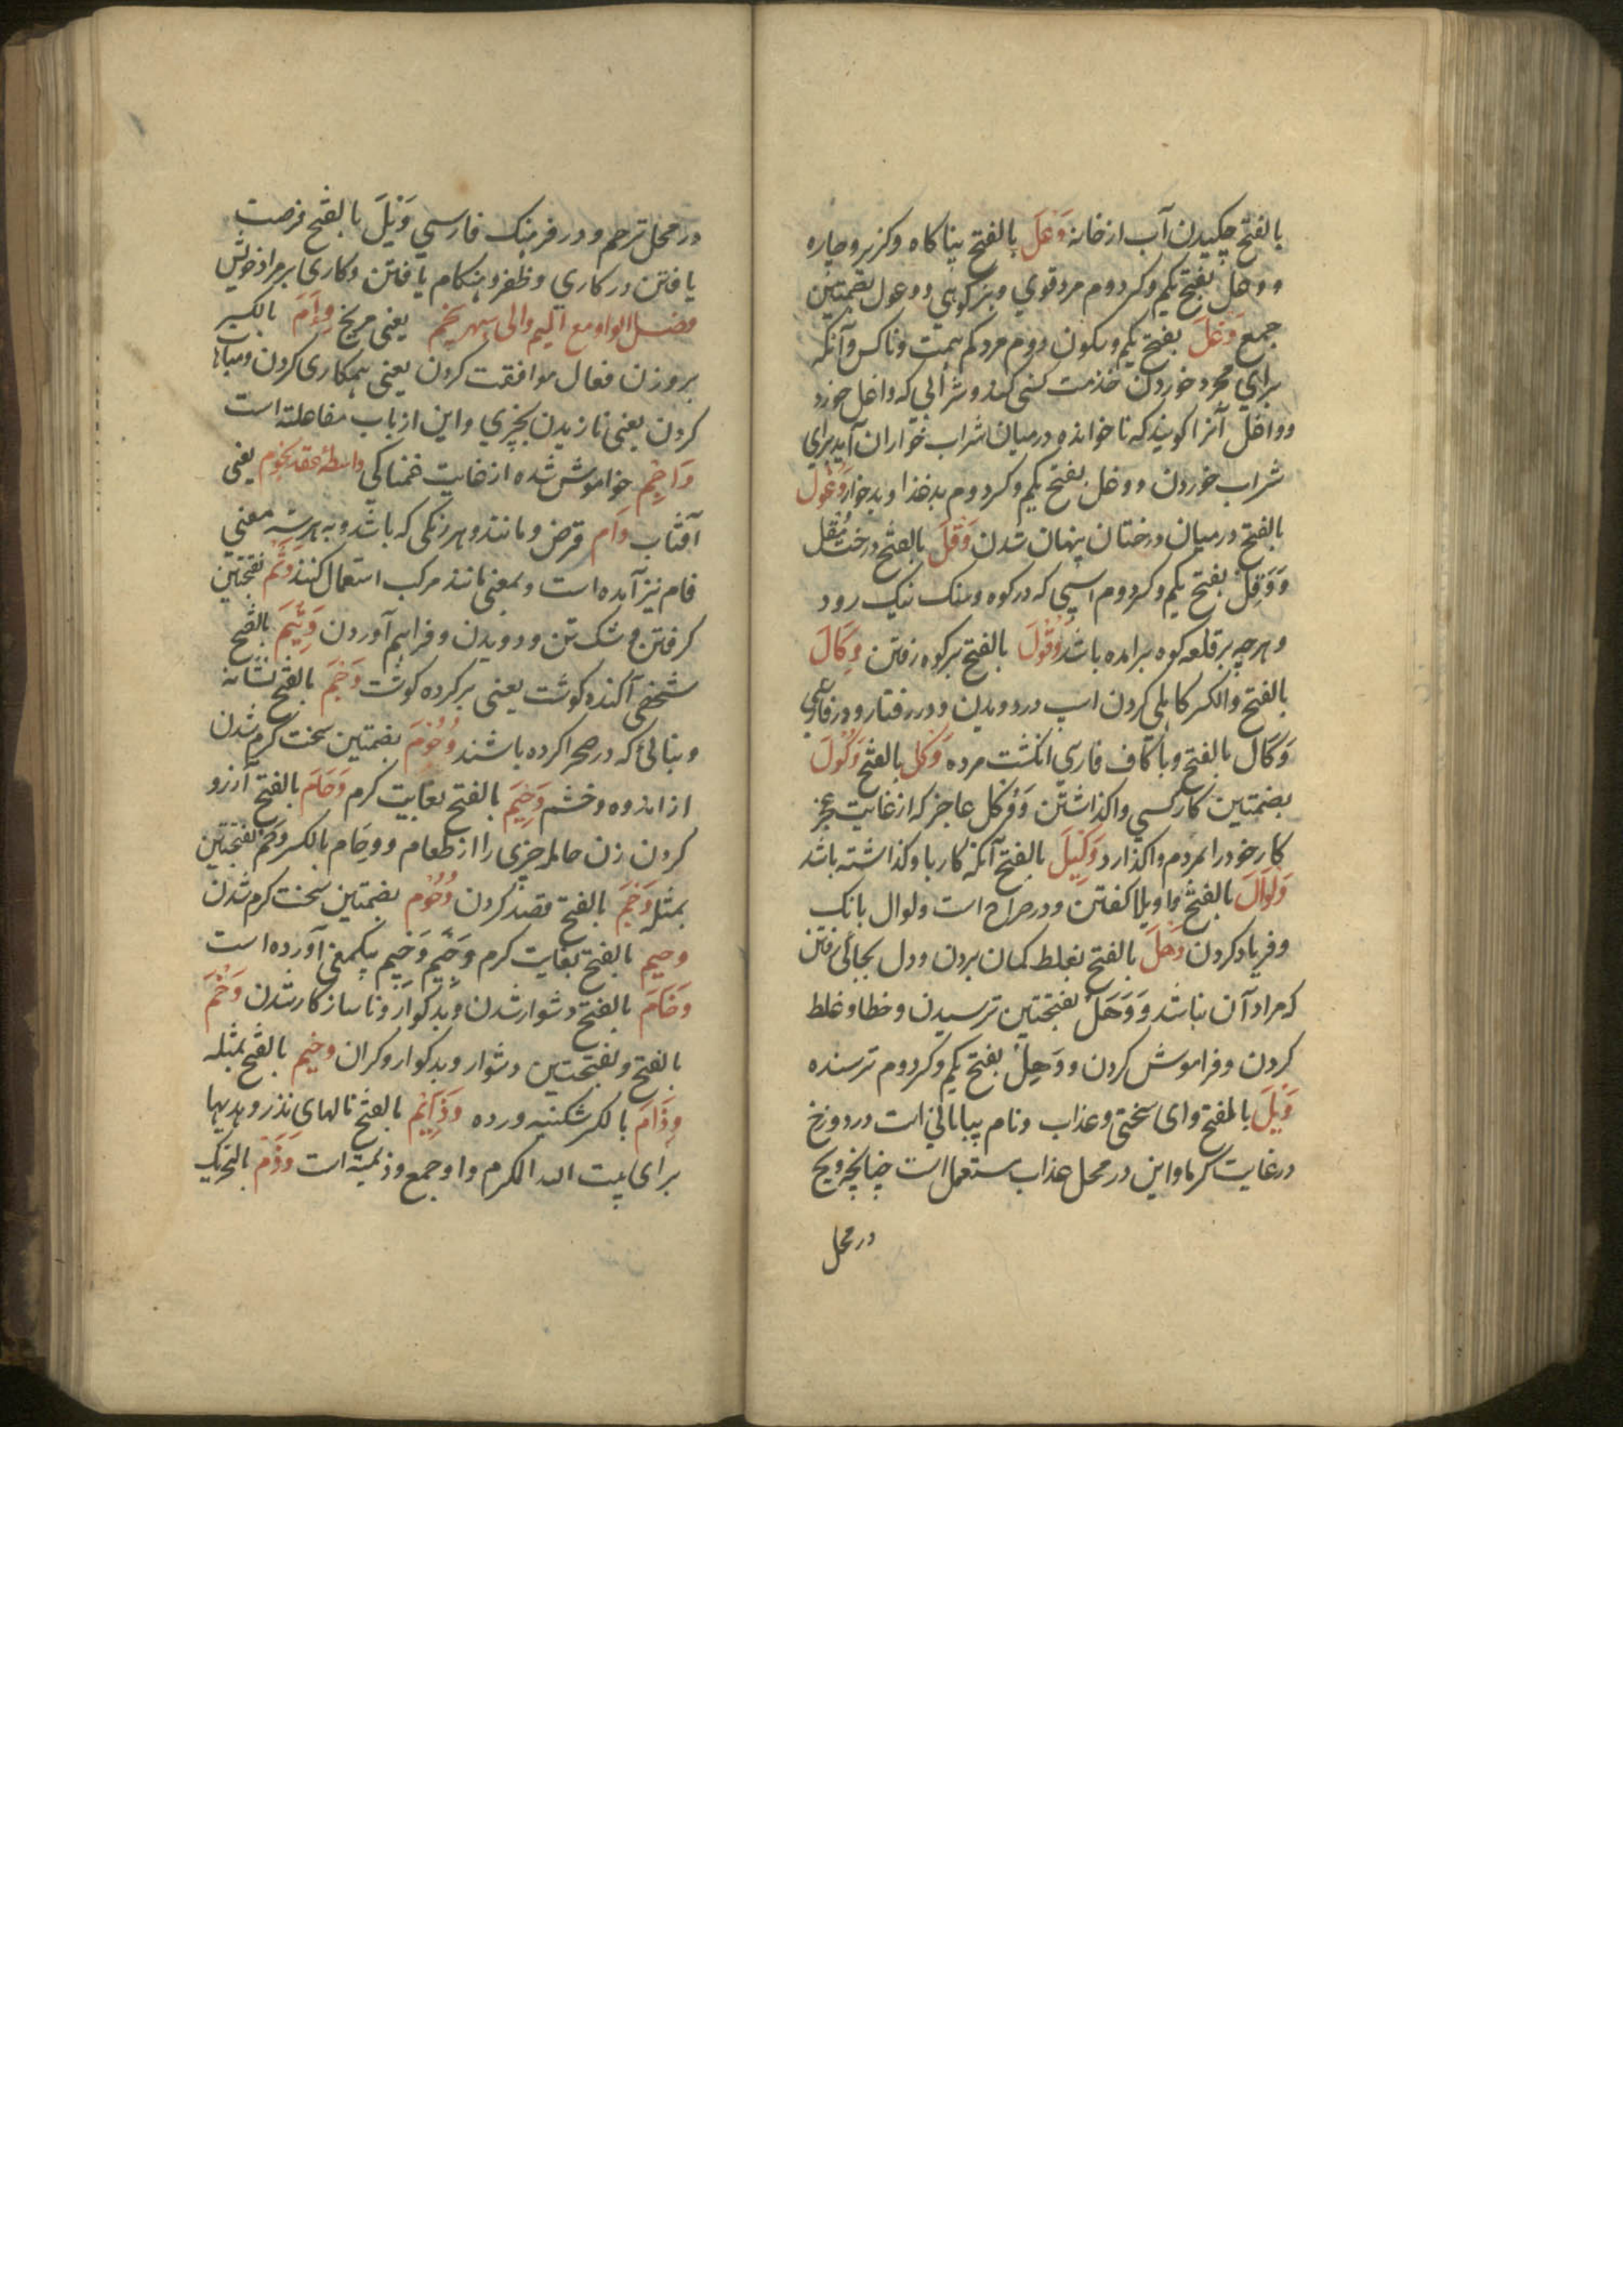 بالفتح چکیدن آب از خانه وَعَلَ بالفتح پناکاه وکزیر وچاره
ووعل بفتح یکم وکسر دوم مرد قوی وبز کوهی ووعول بضمتین
جمع وَغَلَ بفتح یکم وسکون دوم مرد کم همت وناکس وآنکه
برای مجرد خوردن خدمت کسی کند وشرابی که واغل خورد
وواغل آنرا کویند که ناخوانده درمیان شراب خواران آید برای
شراب خوردن ووغل بفتح یکم وکسر دوم بدغذا وبدخوار وُغُولَ
بالفتح درمیان درختان پنهان شدن وَقَلَ بالفتح درخت مُقل
وَوَقِل بفتح یکم وکسر دوم اسپی که در کوه وسنک نیک رود
وهرچه بر قلعه کوه برامده باشد وُقُولَ بالفتح برکوه رفتن وِکَالَ
بالفتح والکسر کاهلی کردن اسپ در دویدن ودر رفتار ودر فارسی
وَکَال بالفتح وباکاف فارسی انکشت مرده وَکل بالفتح وُکُولَ
بضمتین کار بکسی واکذاشتن وَوکل عاجز که از غایت عجز
کار خود را بمردم واکذارد وَکِیلَ بالفتح آنکه کار باو کذاشته باشد
وَلوَالَ بالفتح واویلا کفتن ودر صراح است ولوال بانک
وفریاد کردن وَهلَ بالفتح بغلط کمان بردن ودل بجائی رفتن
که مراد آن نباشد وَوَهَل بفتحتین ترسیدن وخطا وغلط
کردن وفراموش کردن ووَهِل بفتح یکم وکسر دوم ترسنده
وَیلَ بالفتح وای سختی وعذاب ونام بیابانی است در دوزخ
در غایت کرما واین در محل عذاب مستعمل است چنانچه ویح
در محل
در محل ترحم ودر فرهنک فارسی وَیلَ بالفتح فرصت
یافتن در کاری وظفر وهنکام یافتن وکاری بر مراد خویش
فصل الواو مع المیم والی سپهر پنجم یعنی مریخ وِأَمَ بالکسر
بروزن فعال موافقت کردن یعنی همکاری کردن ومباهات
کردن یعنی نازیدن بچیزی واین از باب مفاعلته است
وَاجِم خواموش شده از غایت غمناکی واسطه عقد نجوم یعنی
آفتاب وَام قرض ومانند وهر رنکی که باشد وبه هر سه معنی
فام نیز آمده است وبمعنی مانند مرکب استعمال کنند وَثم بفتحتین
کرفتن وشکستن ودویدن وفراهم آوردن وَثِیمَ بالفتح
شخصی آکنده کوشت یعنی پرکرده کوشت وَجَمَ بالفتح نشانه
وبنائی که در صحرا کرده باشند وُجُومَ بضمتین سخت کرم شدن
از اندوه وخشم وَجِیمَ بالفتح بغایت کرم وَحَامَ بالفتح آرزو
کردن زن حامله چیزی را از طعام ووِحَام بالکسر وَحَم بفتحتین
بمثله وَحَمَ بالفتح قصد کردن وُحُوم بضمتین سخت کرم شدن
وحیم بالفتح بغایت کرم وَجِیم وَحیم بیکمعنی آورده است
وَخَامَ بالفتح دشوار شدن وبدکوار وناساز کار شدن وَخَمَ
بالفتح وبفتحتین دشوار وبدکوار وکران وخیم بالفتح بمثله
وِذَامَ بالکسر شکنبه ورده وَذَایِم بالفتح مالهای نذر وهدیها
برای بیت الله المکرم واو جمع وذیمة است وَذَمَ بالتحریک